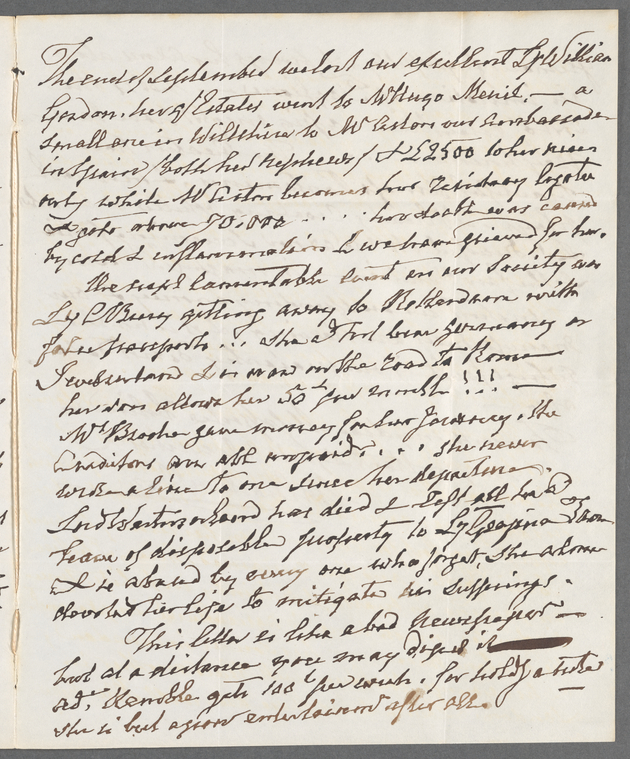 The end of September we lost our excellent Ly William
Gordon. her gt Estates went to Mr Hugo Meynil, — a
small one in Wiltshire to Mr Liston our Ambassador
in Spain / both her Nephews / & £2500 to her niece
only while Mr Liston becomes her Residuary legate
& gets above 70,000 . . . . her death was caused
by cold & inflammation & we have grieved for her.
the next lamentable event in our Society was
Ly C Bury getting away to Rotterdam with
false passports . . . she
Switzerland & is now on the road to Rome
her son allows her 50 per month !!! —
Mr gave money for her Journey. the
Creditors are all unpaid . . . . she never
wrote a line to one since her departure.
Lord has died & left all he
of disposable property to Ly Georgina
& is abused by every one who forget, she alone
devoted her life to mitigate his sufferings.
This letter is like a bad Newspaper —
but at a distance you may digest it
Kemble gets 100 per week. for
she is but a poor entertainment after all.